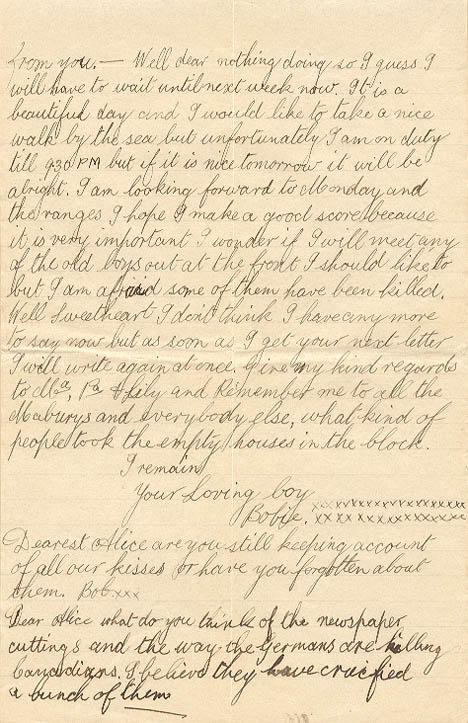 from you. — Well dear nothing doing so I guess I
will have to wait until next week now. It is a
beautiful day and I would like to take a nice
walk by the sea but unfortunately I am on duty
till 9 30 PM but if it is nice tomorrow it will be
alright. I am looking forward to Monday and
the ranges I hope I make a good score because
it is very important I wonder if I will meet any
of the old boys out at the front I should like to
but I am afraid some of them have been killed.
Well Sweetheart I don't think I have any more
to say now but as soon as I get your next letter
I will write again at once. Give my kind regards
to Ma, Pa & Lily and Remember me to all the
Maburys and everybody else, what kind of
people took the empty houses in the block.
I remain
Your Loving boy
Bobie. xxxxxxxxxxxxxxxxx
xxxxxxxxxxxxxxxx
Dearest Alice are you still keeping account
of all our kisses or have you forgotten about
them. Bob. xxx
Dear Alice what do you think of the newspaper
cuttings and the way the Germans are killing
Canadians. I believe they have crucified
a bunch of them